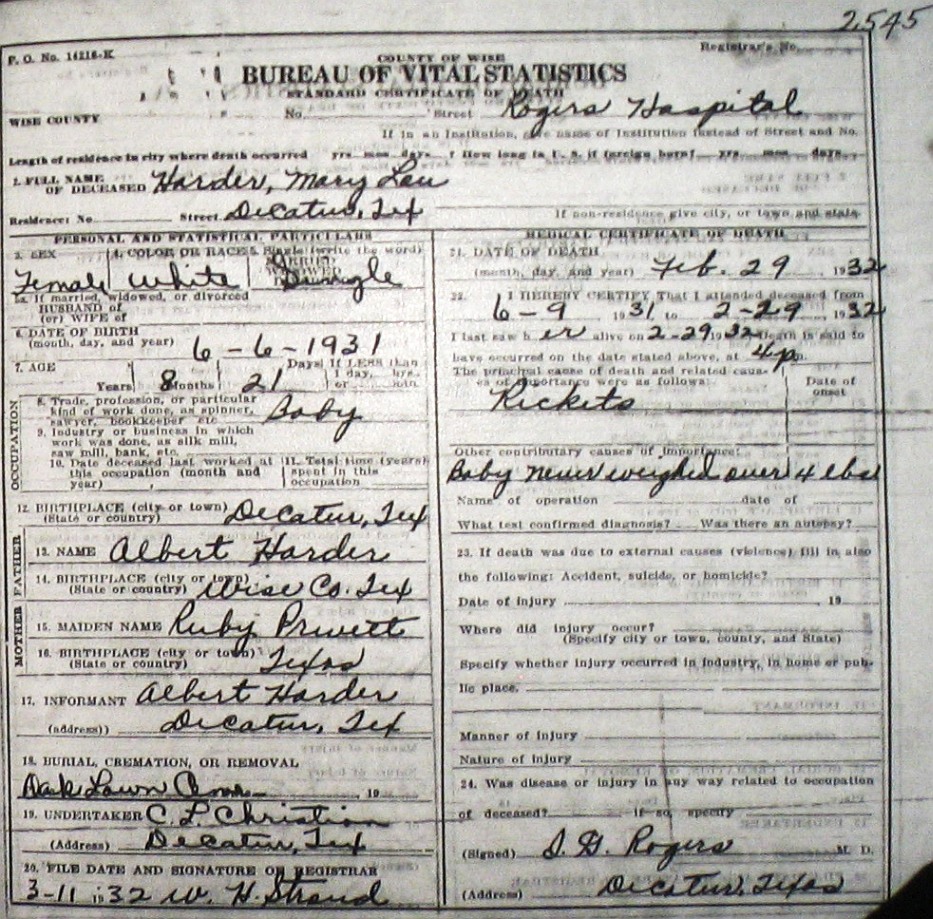 2545
F. O. No. 14216-K
Registrar's No.
COUNTY OF WISE
BUREAU OF VITAL STATISTICS
STANDARD CERTIFICATE OF DEATH
WISE COUNTY No. Street Rogers Hospital
If in an Institution, give name of Institution instead of Street and No.
Length of residence in city where death occurred yrs. mos. days. ? How long in U. S. if foreign born? yrs. mos. days.
2. FULL NAME OF DECEASED Harder, Mary Lou
Residence: No. Street Decatur, Tex
If non-residence give city, or town and state.
PERSONAL AND STATISTICAL PARTICULARS
3. SEX Female
4. COLOR OR RACE White
5. Single (write the word) MARRIED WIDOWED Single
5a. If married, widowed, or divorced
HUSBAND of
(or) WIFE of
6. DATE OF BIRTH
(month, day, and year) 6-6-1931
7. AGE Years 8 Months 21 Days If LESS than 1 day, hrs. or min.
OCCUPATION
8. Trade, profession, or particular
kind of work done, as spinner,
sawyer, bookkeeper etc Baby
9. Industry or business in which
work was done, as silk mill,
saw mill, bank, etc.
10. Date deceased last worked at
this occupation (month and
year)
11. Total time (years)
spent in this
occupation
12. BIRTHPLACE (city or town)
(State or country) Decatur, Tex
FATHER
13. NAME Albert Harder
14. BIRTHPLACE (city or town)
(State or country) Wise Co. Tex
MOTHER
15. MAIDEN NAME Ruby Pruett
16. BIRTHPLACE (city or town)
(State or country) Texas
17. INFORMANT Albert Harder
(address)) Decatur, Tex
18. BURIAL, CREMATION, OR REMOVAL
Oak Lawn Cem 19
19. UNDERTAKER C. L. Christian
(Address) Decatur, Tex
20. FILE DATE AND SIGNATURE OF REGISTRAR
3-11 1932 W. H. Stroud
MEDICAL CERTIFICATE OF DEATH
21. DATE OF DEATH
(month, day, and year) Feb. 29 1932
22. I HEREBY CERTIFY That I attended deceased from
6-9 1931 to 2-29, 1932
I last saw h er alive on 2-29, 1932 Death is said to
have occurred on the date stated above, at 4 p.
The principal cause of death and related causes
of importance were as follows: Date of onset
Rickets
Other contributary causes of importance:
Baby never weighed over 4 lbs
Name of operation date of
What test confirmed diagnosis? Was there an autopsy?
23. If death was due to external causes (violence) fill in also
the following: Accident, suicide, or homicide?
Date of injury 19
Where did injury occur?
(Specify city or town, county, and State)
Specify whether injury occurred in industry, in home or pub-
lic place.
Manner of injury
Nature of injury
24. Was disease or injury in any way related to occupation
of deceased? if so, specify
(Signed) J. G. Rogers M. D.
(Address) Decatur, Texas